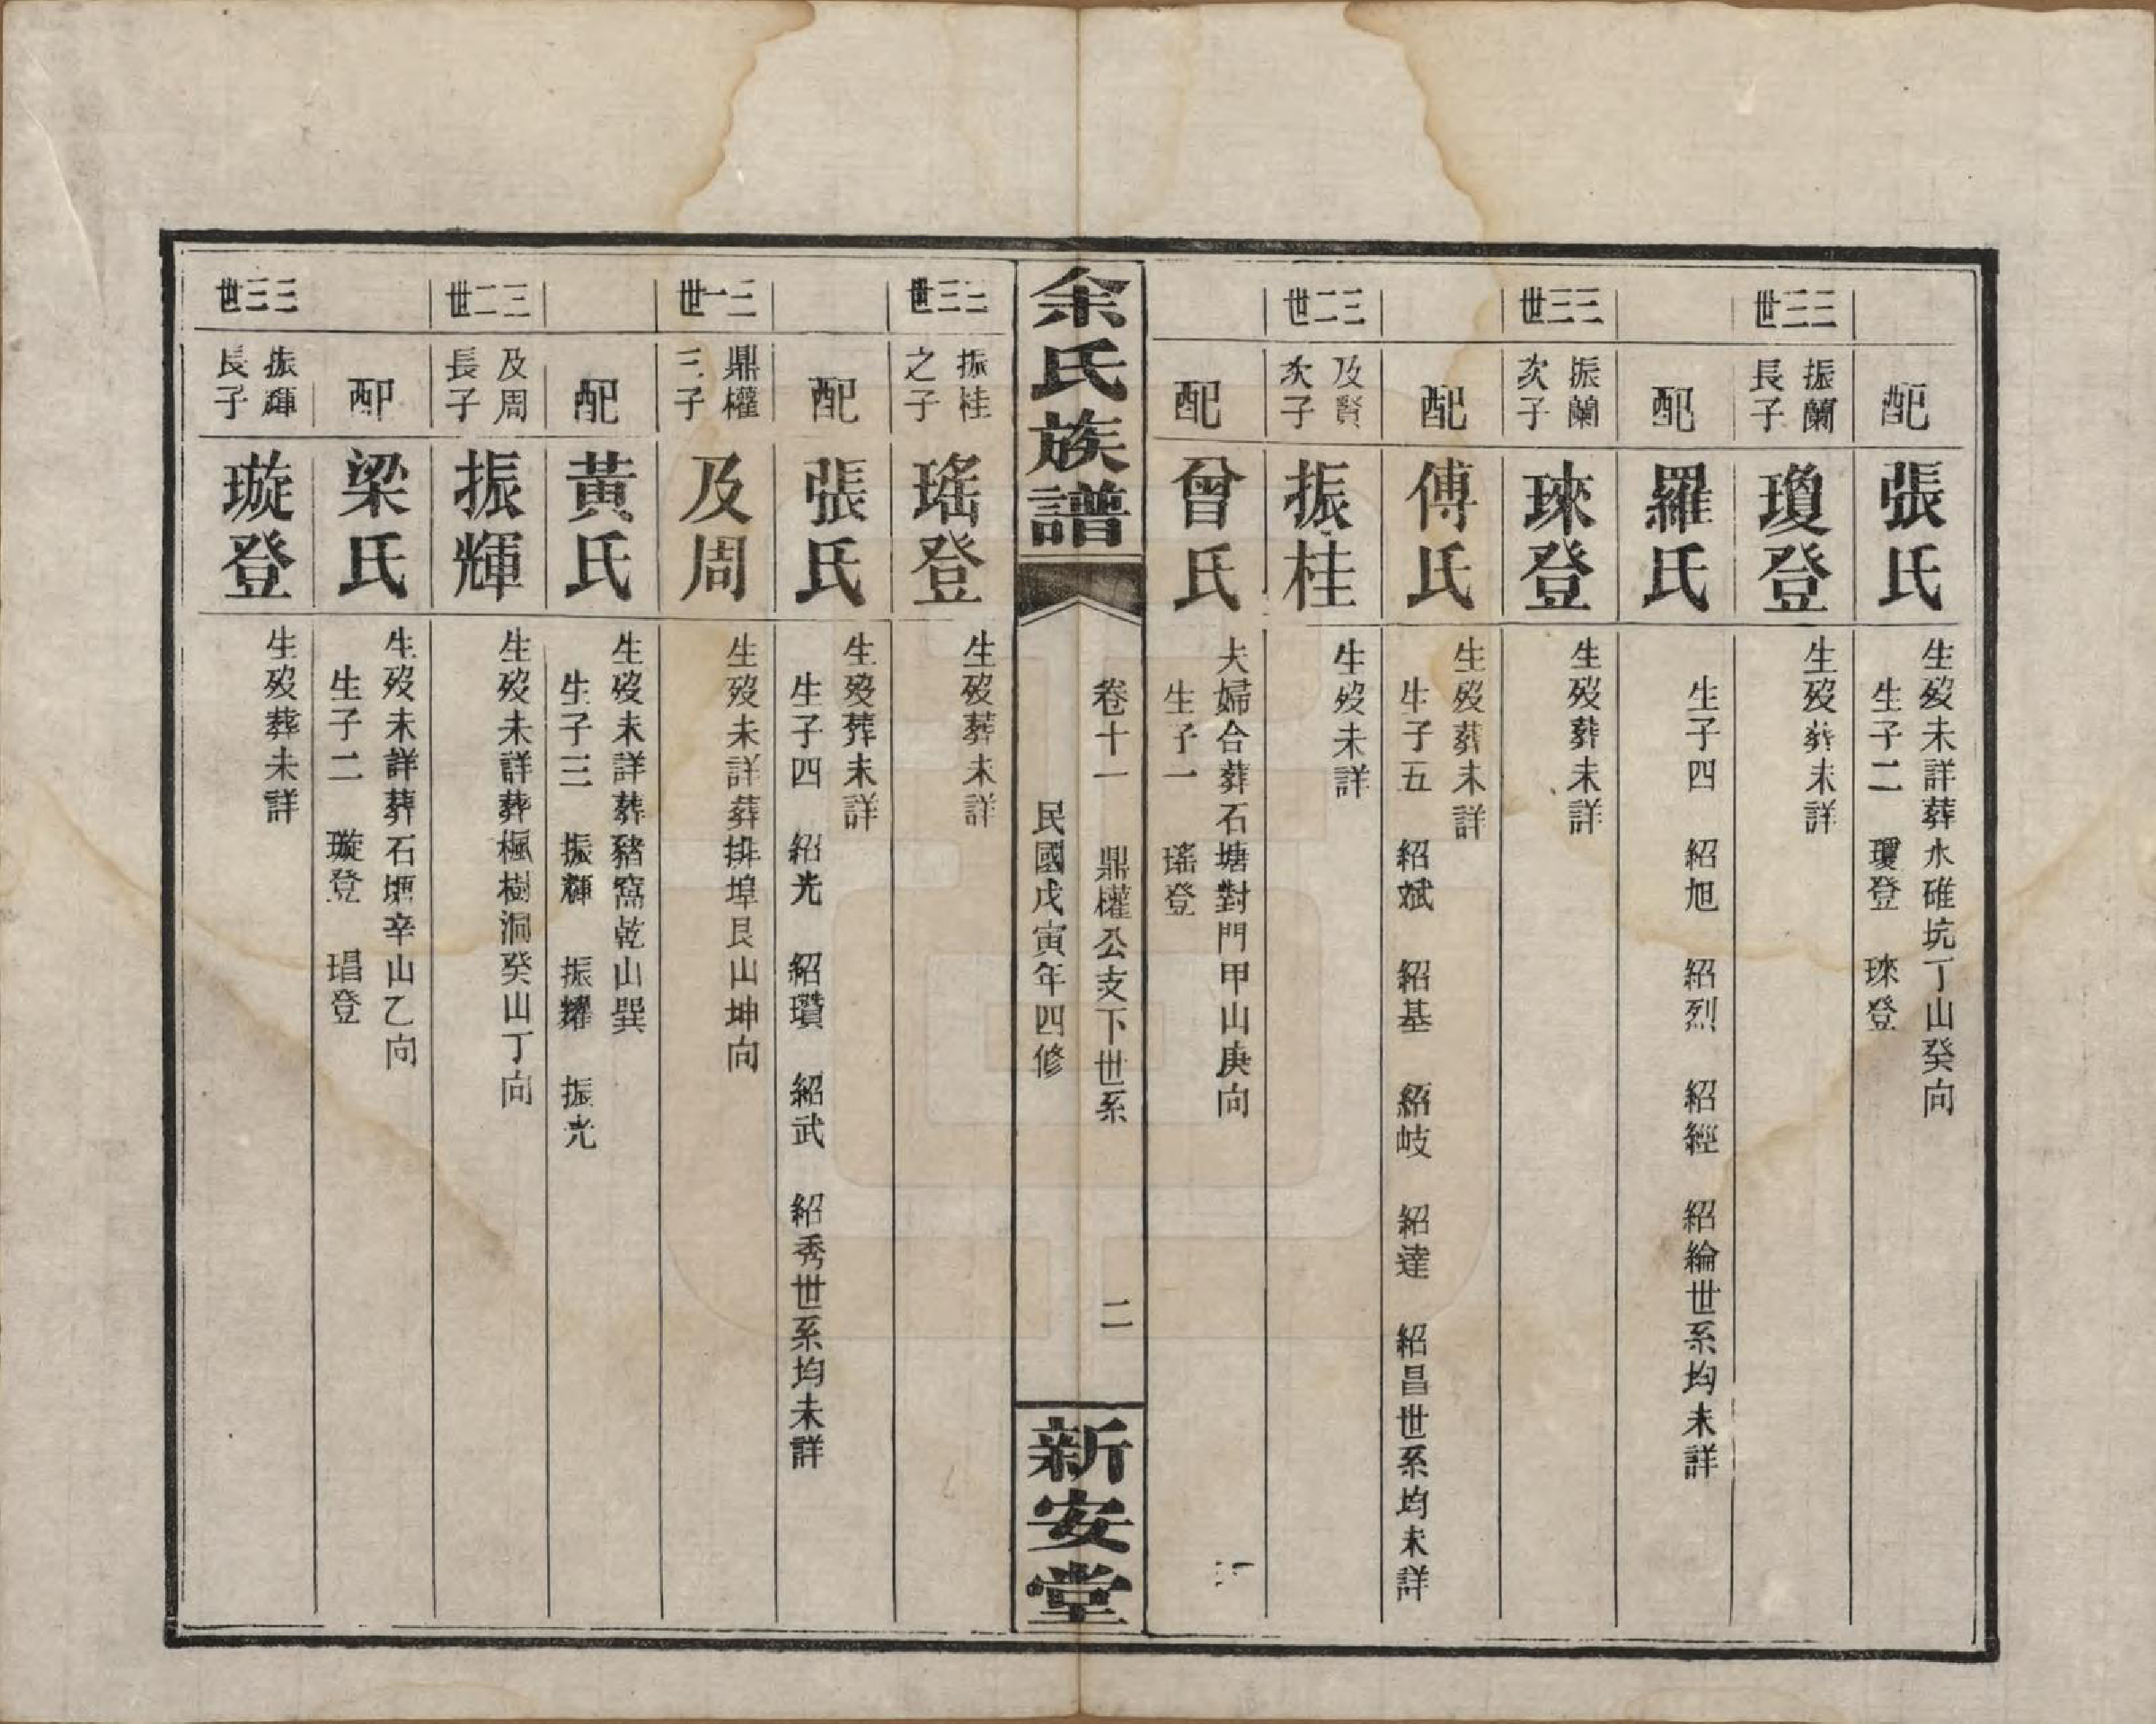 配
張氏
生歿未詳葬水碓坑丁山癸向
生子二 瓊登 琜登
三三世
振蘭
長子
瓊登
生歿葬未詳
配
羅氏
生子四 紹旭 紹烈 紹經 紹綸世系均未詳
三三世
振蘭
次子
琜登
生歿葬未詳
配
傅氏
生歿葬未詳
生子五 紹斌 紹基 紹岐 紹達 紹昌世系均未詳
三二世
及賢
次子
振桂
生歿未詳
配
曾氏
夫婦合葬石塘對門甲山庚向
生子一 瑤登
余氏族譜
卷十一 鼎權公支下世系 二
民國戊寅年四修
新安堂
三三世
振桂
之子
瑤登
生歿葬未詳
配
張氏
生歿葬未詳
生子四 紹光 紹瓚 紹武 紹秀世系均未詳
三一世
鼎權
三子
及周
生歿未詳葬排埠艮山坤向
配
黃氏
生歿未詳葬豬窩乾山巽
生子三 振輝 振耀 振光
三二世
及周
長子
振輝
生歿未詳葬楓樹洞癸山丁向
配
梁氏
生歿未詳葬石堐辛山乙向
生子二 璇登 琩登
三三世
振輝
長子
璇登
生歿葬未詳